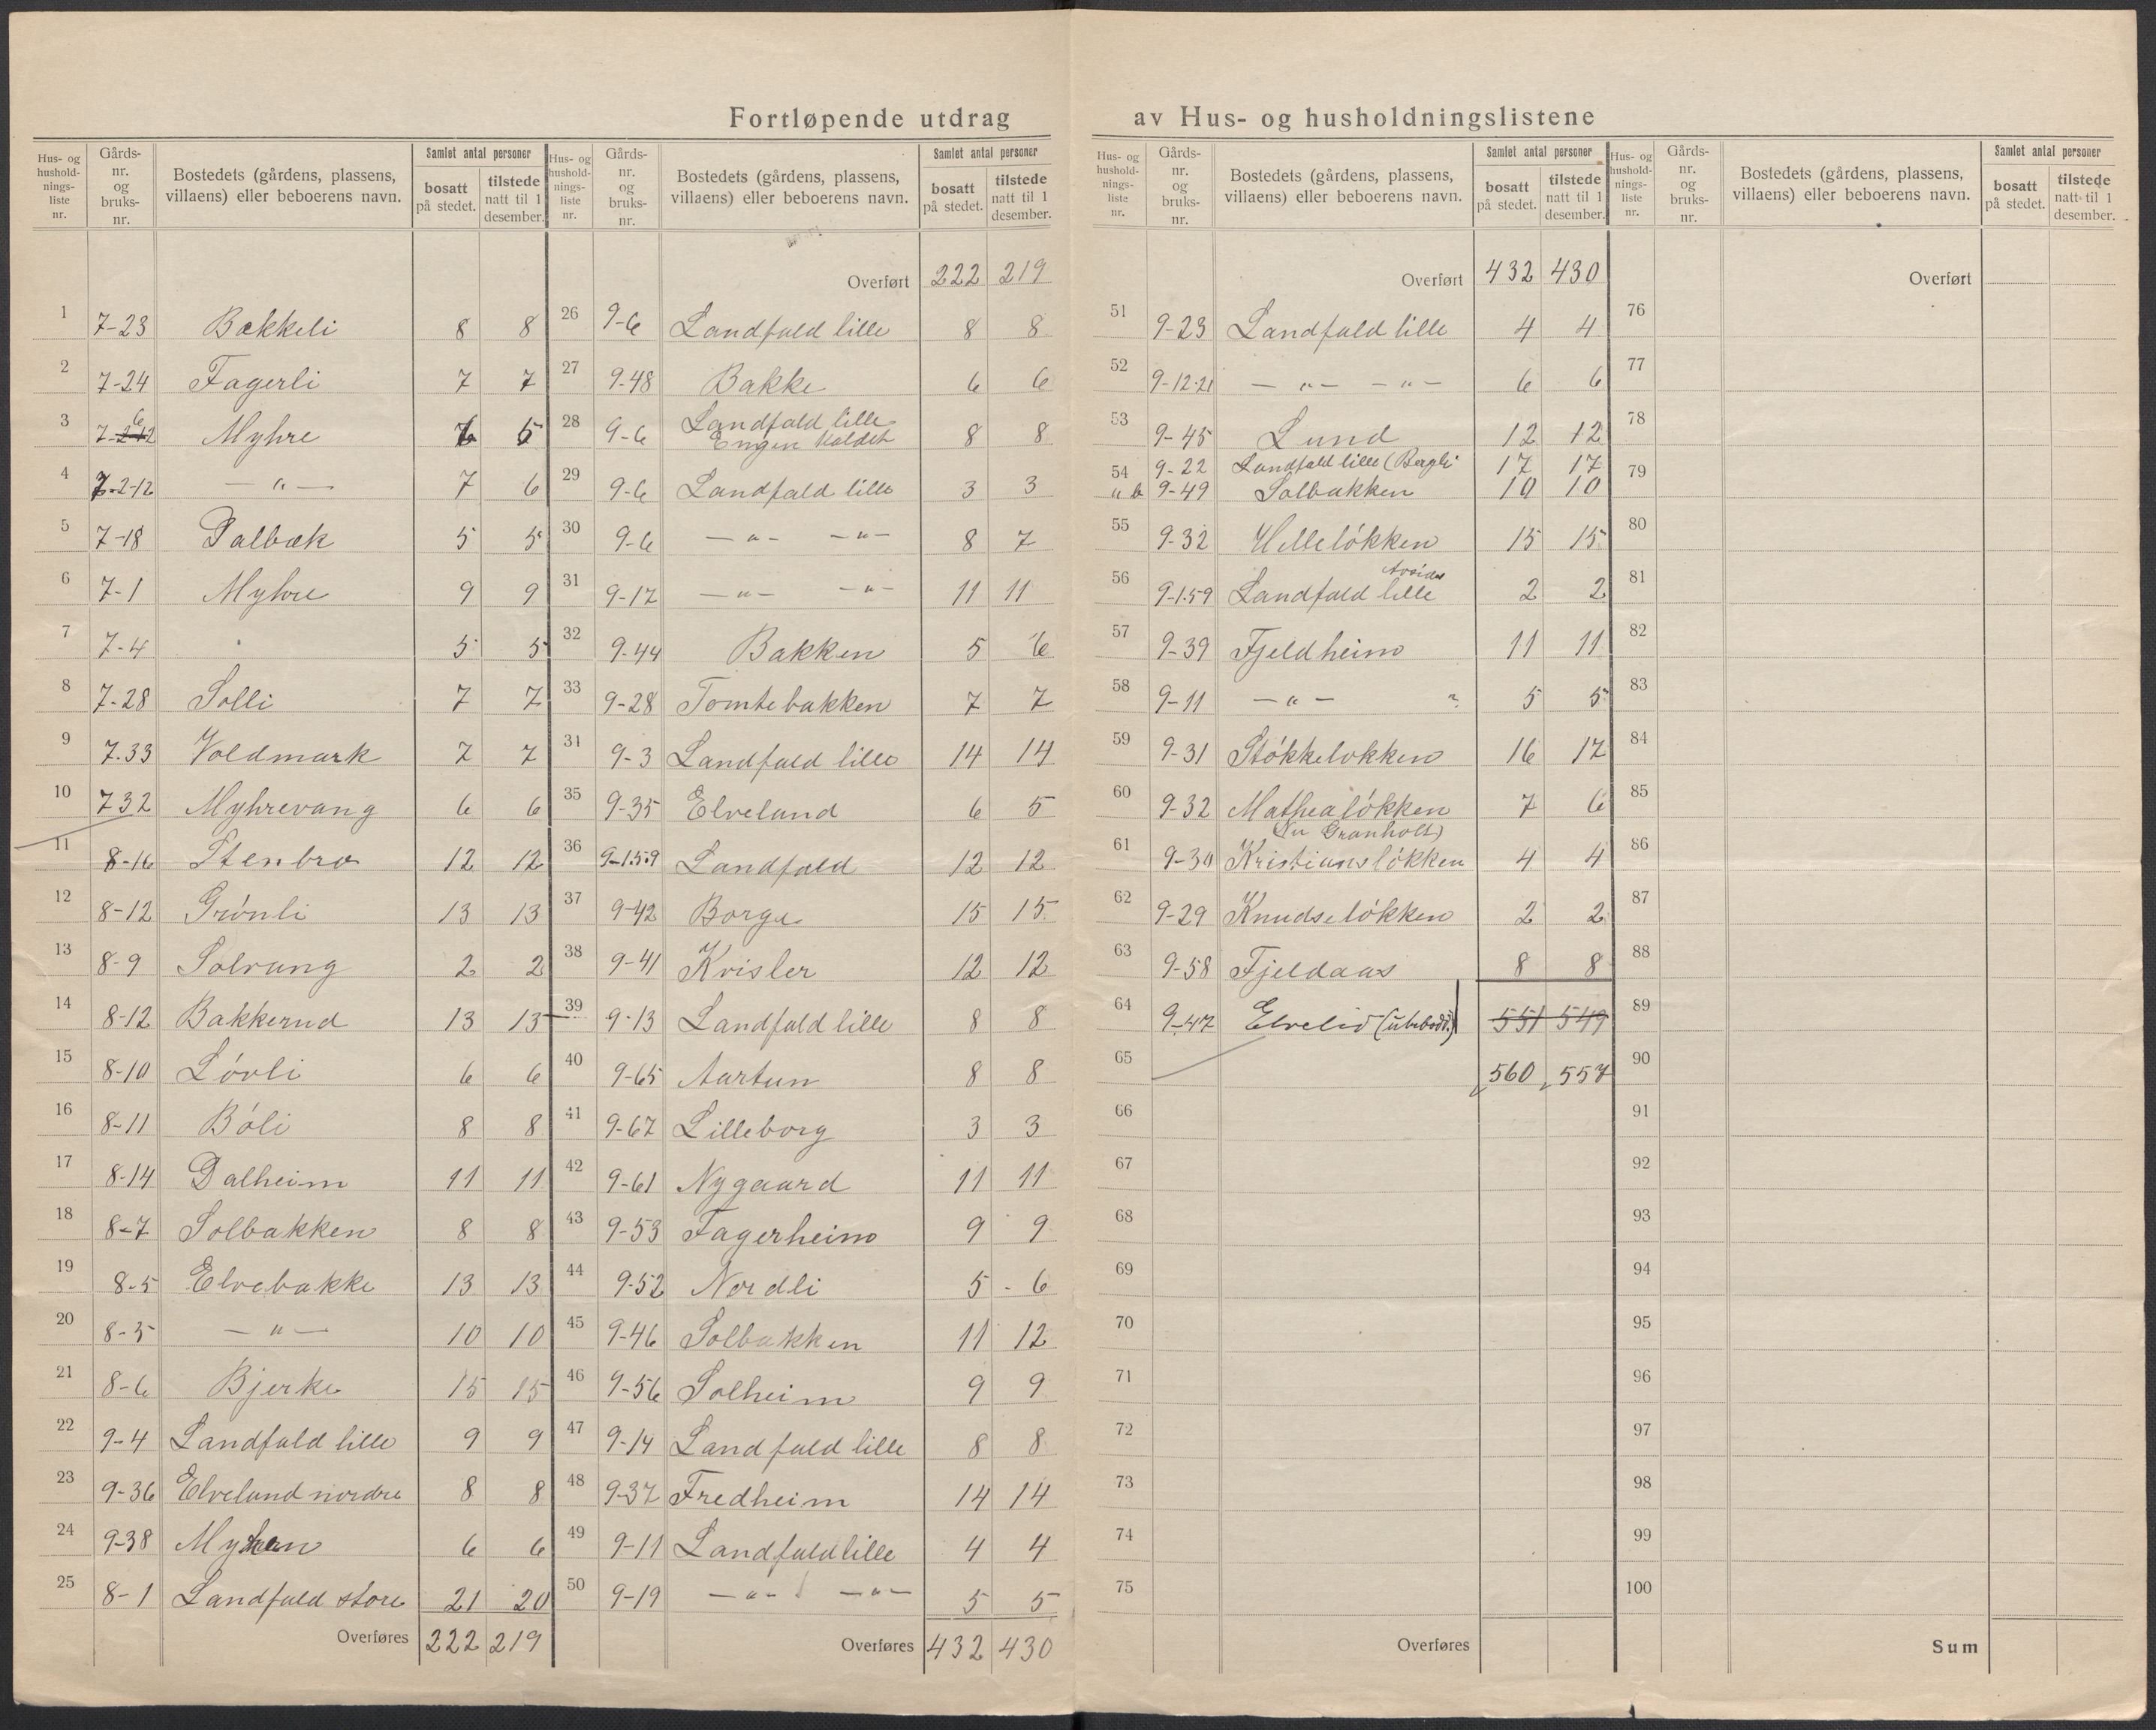 Fortløpende utdrag av Hus- og husholdningslistene
Hus- og husholdnings-liste nr. Gårds-nr. og bruks-nr. Bostedets (gårdens, plassens, villaens) eller beboerens navn. Samlet antal personer bosatt på stedet. tilstede natt til 1 desember.
1 7-23 Bækkeli 8 8
2 7-24 Fagerli 7 7
3 7-6 Myhre 6 5
4 7-2-12 — " — 7 6
5 7-18 Dalbæk 5 5
6 7-1 Myhre 9 9
7 7-4 " 5 5
8 7-28 Solli 7 7
9 7.33 Voldmark 7 7
10 732 Myhrevang 6 6
11 8-16 Stenbro 12 12
12 8-12 Grönli 13 13
13 8-9 Solvang 2 2
14 8-12 Bakkerud 13 13
15 8-10 Lövli 6 6
16 8-11 Böli 8 8
17 8-14 Dalheim 11 11
18 8-7 Solbakken 8 8
19 8-5 Elvebakke 13 13
20 8-5 — " — 10 10
21 8-6 Bjerke 15 15
22 9-4 Landfald lille 9 9
23 9-36 Elvelund nordre 8 8
24 9-38 6 6
25 8-1 Landfald store 21 20
Overføres 222 219
Hus- og husholdnings-liste nr. Gårds-nr. og bruks-nr. Bostedets (gårdens, plassens, villaens) eller beboerens navn. Samlet antal personer bosatt på stedet. tilstede natt til 1 desember.
Overført 222 219
26 9-6 Landfald lille 8 8
27 9-48 Bakke 6 6
28 9-6 Landfald lille
Engen kaldet 8 8
29 9-6 Landfald lille 3 3
30 9-6 — " — — " — 8 7
31 9-17 — " — — " — 11 11
32 9-44 Bakken 5 6
33 9-28 Tomtebakken 7 7
34 9-3 Landfald lille 14 14
35 9-35 Elvelund 6 5
36 9-1.5.9 Landfald 12 12
37 9-42 Borge 15 15
38 9-41 Kvisler 12 12
39 9-13 Landfald lille 8 8
40 9-65 Aartun 8 8
41 9-67 Lilleborg 3 3
42 9-61 Nygaard 11 11
43 9-53 Fagerheim 9 9
44 9-52 Nordli 5 - 6
45 9-46 Solbakken 11 12
46 9-56 Solheim 9 9
47 9-14 Landfald lille 8 8
48 9-37 Fredheim 14 14
49 9-11 Landfald lille 4 4
50 9-19 — " — — " — 5 5
Overføres 432 430
Hus- og husholdnings-liste nr. Gårds-nr. og bruks-nr. Bostedets (gårdens, plassens, villaens) eller beboerens navn. Samlet antal personer bosatt på stedet. tilstede natt til 1 desember.
Overført 432 430
51 9-23 Landfald lille 4 4
52 9-12.21 — " — — " — 6 6
53 9-45 Lund 12 12
54 9-22 Landfald lille (Bergli 17 17
" b 9-49 Solbakken 10 10
55 9-32 Helleløkken 15 15
56 9-1.5.9 Landfald lille 2 2
57 9-39 Fjeldheim 11 11
58 9-11 — " — " 5 5
59 9-31 Stökkelokken 16 17
60 9-32 Mathealökken 7 6
(Nu Granholt)
61 9-30 Kristianslökken 4 4
62 9-29 Knudselökken 2 2
63 9-58 Fjeldaas 8 8
64 9-47 Elvelid (ubebodd.) 551 549
65 560 557
66
67
68
69
70
71
72
73
74
75
Overføres
Hus- og husholdnings-liste nr. Gårds-nr. og bruks-nr. Bostedets (gårdens, plassens, villaens) eller beboerens navn. Samlet antal personer bosatt på stedet. tilstede natt til 1 desember.
Overført
76
77
78
79
80
81
82
83
84
85
86
87
88
89
90
91
92
93
94
95
96
97
98
99
100
Sum